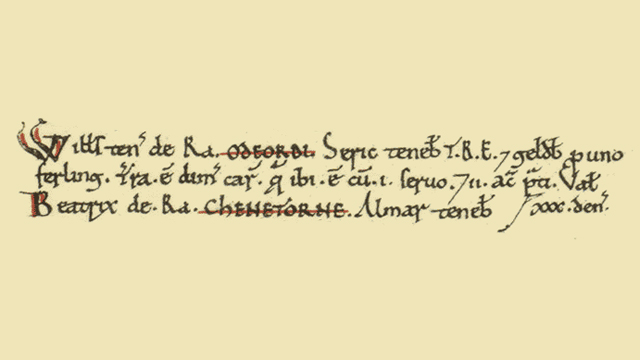 Willś ten̄ de Ra. ODEFORDI. Seric teneb̄ T.R.E. ⁊ geldb̄ ꝑ uno
ferling. Tr̄a. ē dim̄ car̄. q̄ ibi. ē cū .i. seruo. ⁊ ii. ac̄ p̄ti. Val̄
Beatrix de. Ra. CHENETORNE. Almar teneb̄ ∫ xxx. den̄.